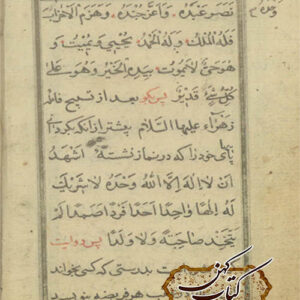 وحده م
نصر عبده، واعز جنده، وهزم الاحزاب
فله الملک وله الحمد یحیی و یمیت و
هو حی لا یموت بیده الخیر وهو علی
کل شیء قدیر پس بعد از تسبیح فاطمه
زهراء علیها السلام پیشتر از آنکه بگرداند
پاهای خود را که در نماز نشسته اشهد
ان لا اله الا الله وحده لا شریک
له الها واحدا احدا فردا صمدا لم
یتخذ صاحبة ولا ولدا پس دولیت
بدرستی که کسی بخواند
هر فریضه
کتاب کهن